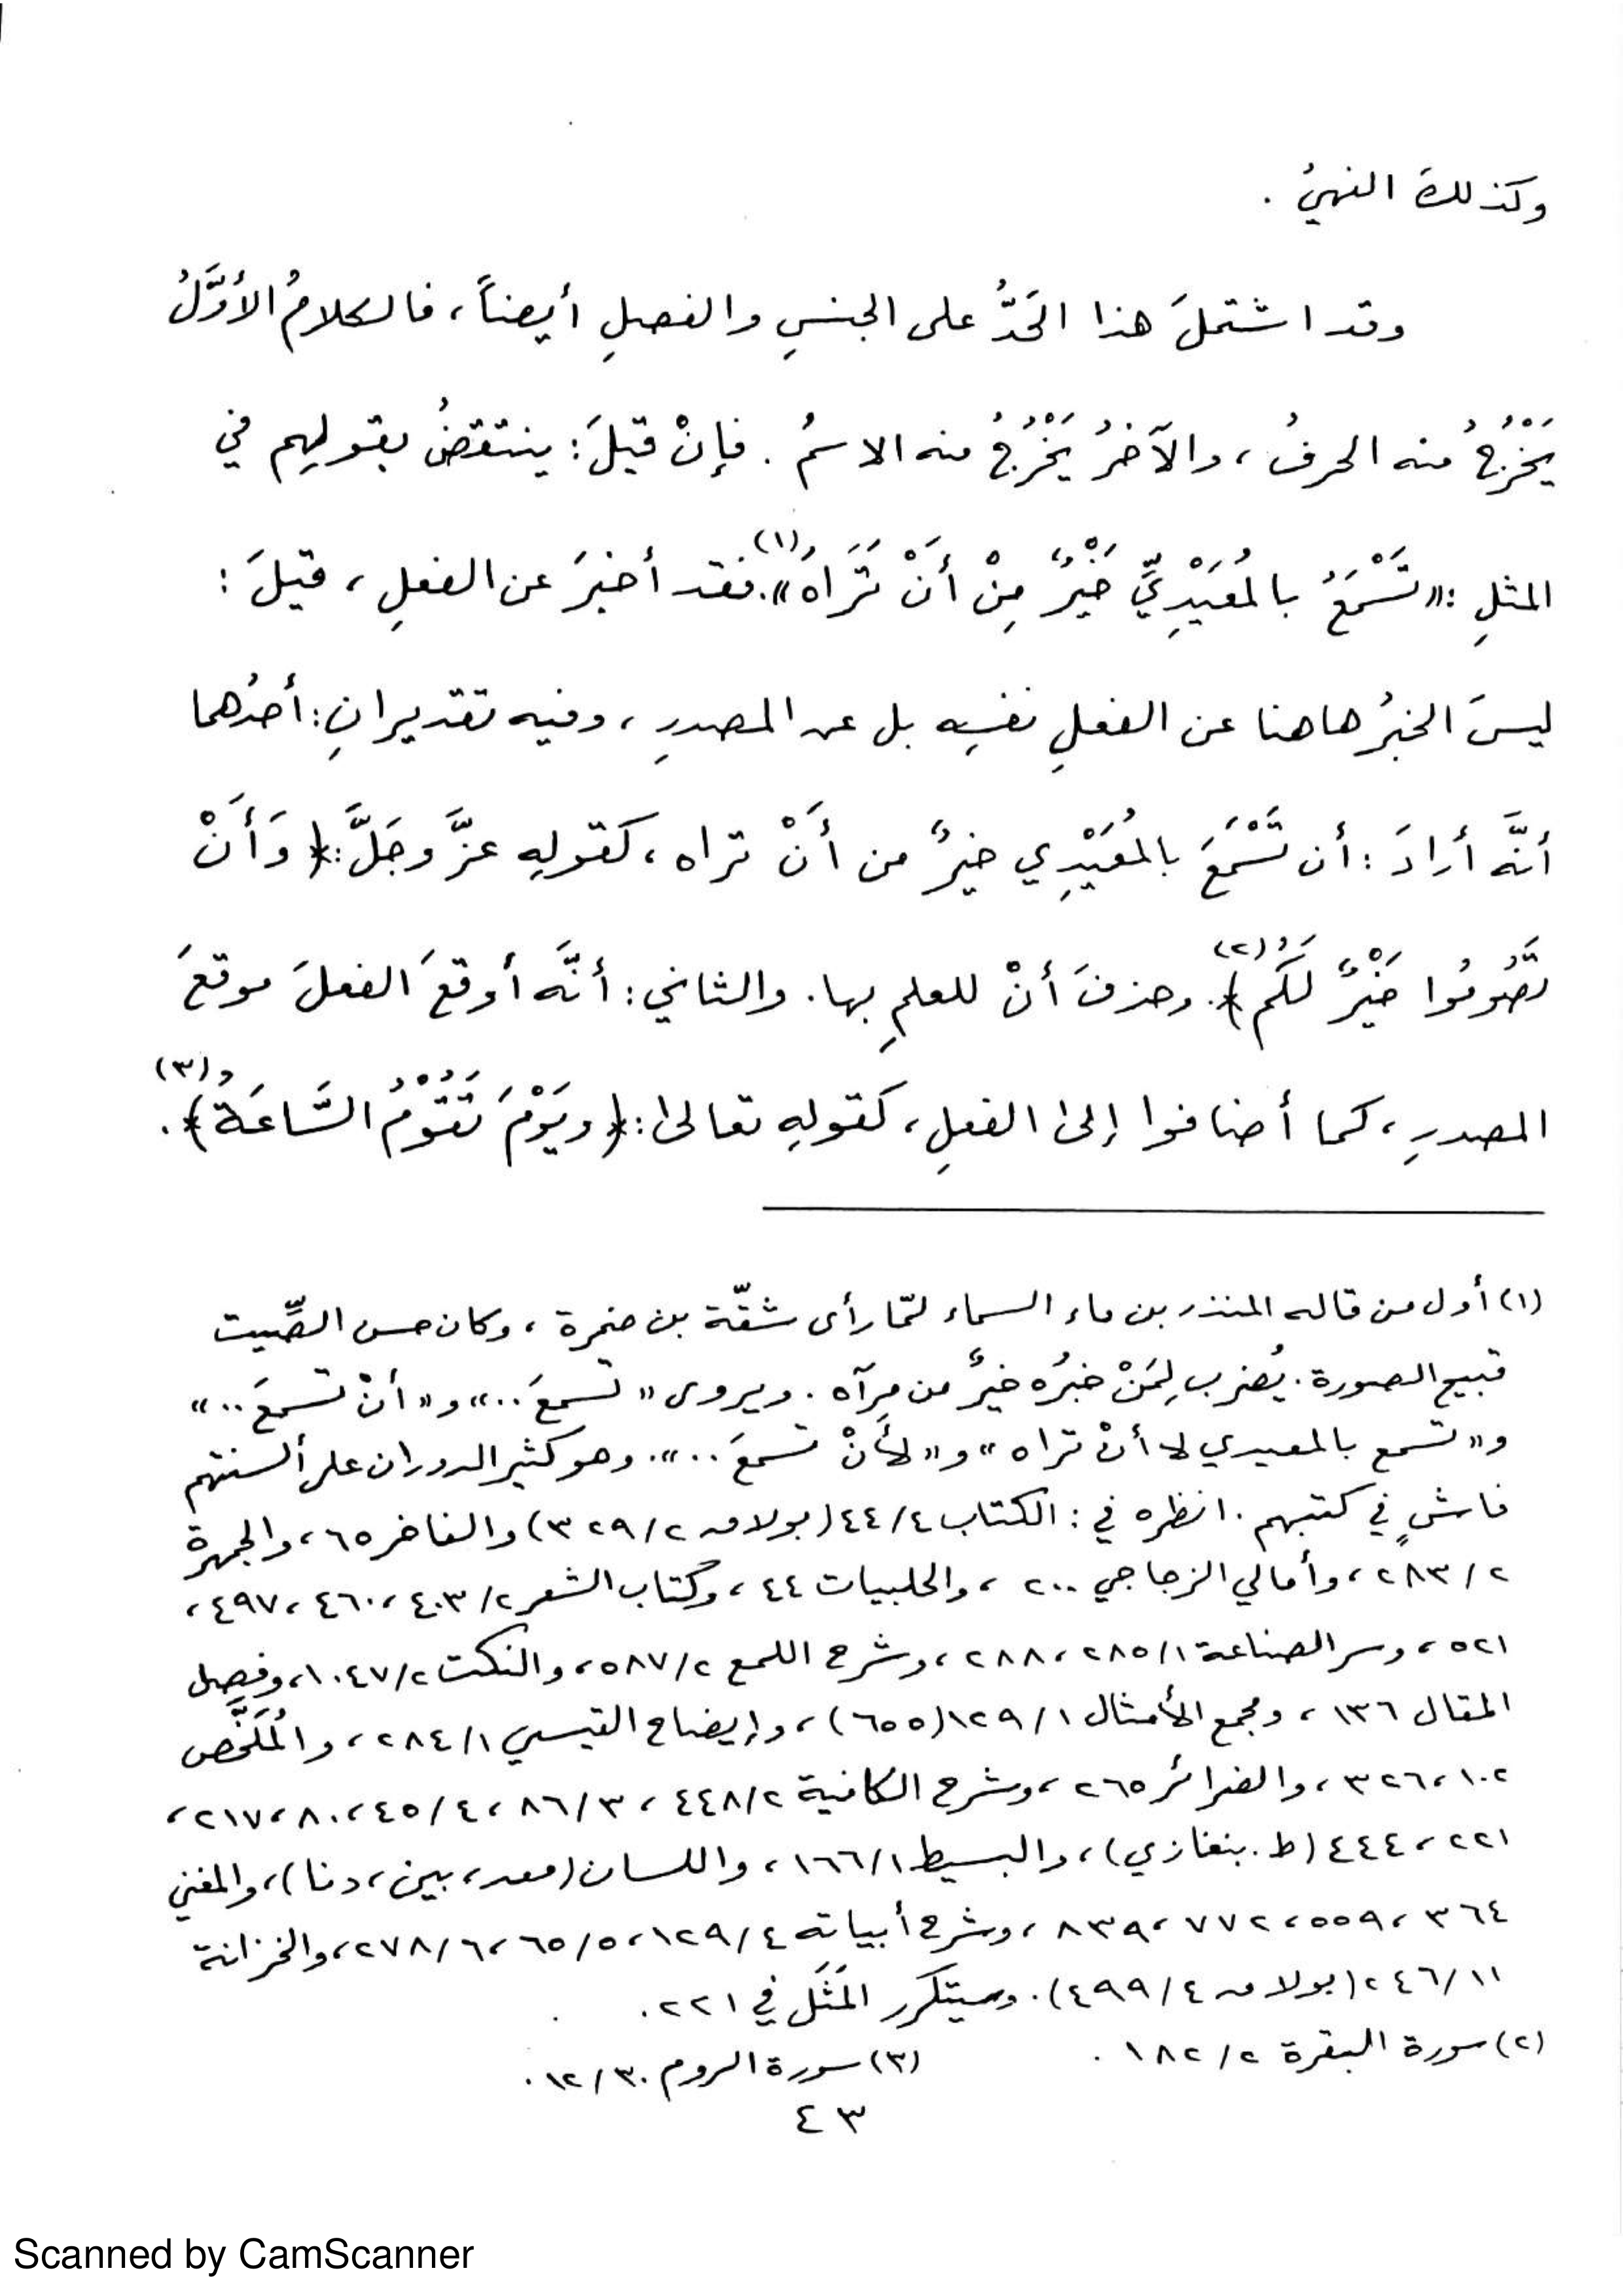 وكذلكَ النهيُ .
وقد اشتملَ هذا الحَدُّ على الجنسِ والفصلِ أيضاً ، فالكلامُ الأوَّلُ
يَخْرُجُ منه الحرفُ ، والآخرُ يَخْرُجُ منه الاسمُ . فإنْ قيلَ : ينتقضُ بقولهِم في
المثلِ : « تَسْمَعُ بالمُعَيْدِيِّ خَيْرٌ مِنْ أَنْ تَرَاهُ »(١). فقد أخبرَ عن الفعلِ ، قيلَ :
ليسَ الخبرُ هاهنا عن الفعلِ نفسِه بل عن المصدرِ ، وفيه تقديرانِ : أحدُهما
أنَّه أرادَ : أن تَسْمَعَ بالمُعَيْدِي خيرٌ من أَنْ تراه ، كقولهِ عزَّ وجَلَّ : ﴿ وَأَنْ
تَصُومُوا خَيْرٌ لَكُم ﴾(٢). وحذفَ أنْ للعلمِ بها . والثاني : أنَّه أوقعَ الفعلَ موقعَ
المصدرِ ، كما أضافوا إلىٰ الفعلِ ، كقولهِ تعالىٰ : ﴿ ويَوْمَ تَقُوْمُ السَّاعَةُ ﴾(٣).
(١) أول من قاله المنذر بن ماء السماء لمّا رأى شقّة بن ضمرة ، وكان حسن الصِّيت
قبيح الصورة . يُضرب لِمَنْ خبرُه خيرٌ من مرآه . ويروى « تسمعَ .. » و « أنْ تسمعَ .. »
و « تسمع بالمعيدي لا أنْ تراه » و « لأَنْ تسمعَ .. ». وهو كثير الدوران على ألسنتهم
فاشٍ في كتبهم . انظره في : الكتاب ٤/٤٤ (بولاق ٢/٣٢٩) والفاخر ٦٥ ، والجمهرة
٢/٢٨٣ ، وأمالي الزجاجي ٢٠٠ ، والحلبيات ٤٤ ، وكتاب الشعر ٢/٤٠٣ ، ٤٦٠ ، ٤٩٧ ،
٥٢١ ، وسر الصناعة ١/٢٨٥ ، ٢٨٨ ، وشرح اللمع ٢/٥٨٧ ، والنكت ٢/١٠٤٧ ، وفصل
المقال ١٣٦ ، ومجمع الأمثال ١/١٢٩ (٦٥٥) ، وإيضاح القيسي ١/٢٨٤ ، والمُلَخَّص
١٠٢ ، ٣٢٦ ، والضرائر ٢٦٥ ، وشرح الكافية ٢/٤٤٨ ، ٣/٨٦ ، ٤/٤٥ ، ٨٠ ، ٢١٧ ،
٢٢١ ، ٤٤٤ (ط . بنغازي) ، والبسيط ١/١٦٦ ، واللسان (معد ، بين ، دنا) ، والمغني
٣٦٤ ، ٥٥٩ ، ٧٧٢ ، ٨٣٩ ، وشرح أبياته ٤/١٢٩ ، ٥/٦٥ ، ٦/٢٧٨ ، والخزانة
١١/٢٤٦ (بولاق ٤/٤٩٩) . وسيتكرر المَثَل في ٢٢١ .
(٢) سورة البقرة ٢/١٨٢ . (٣) سورة الروم ٣٠/١٢ .
٤٣
Scanned by CamScanner